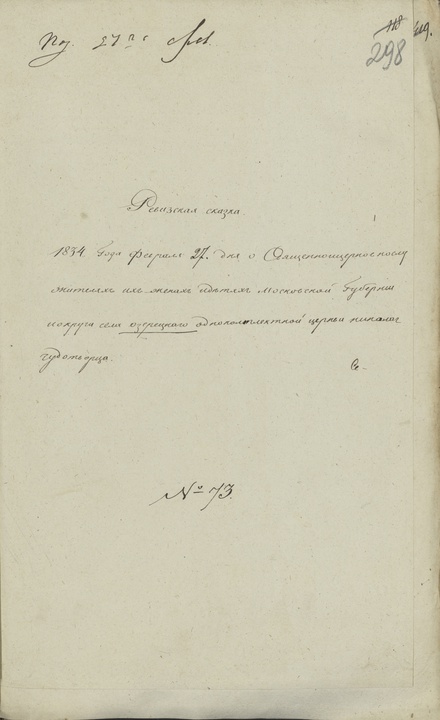 118 419.
298
Ревизская сказка.
1834 Года Февраля 27. дня о Священноицерковнослу
жителях их женах идѣтях Московской Губернии
иокруга села озерецкого однокомплектной церкви николая
чудотворца.
№ 73.